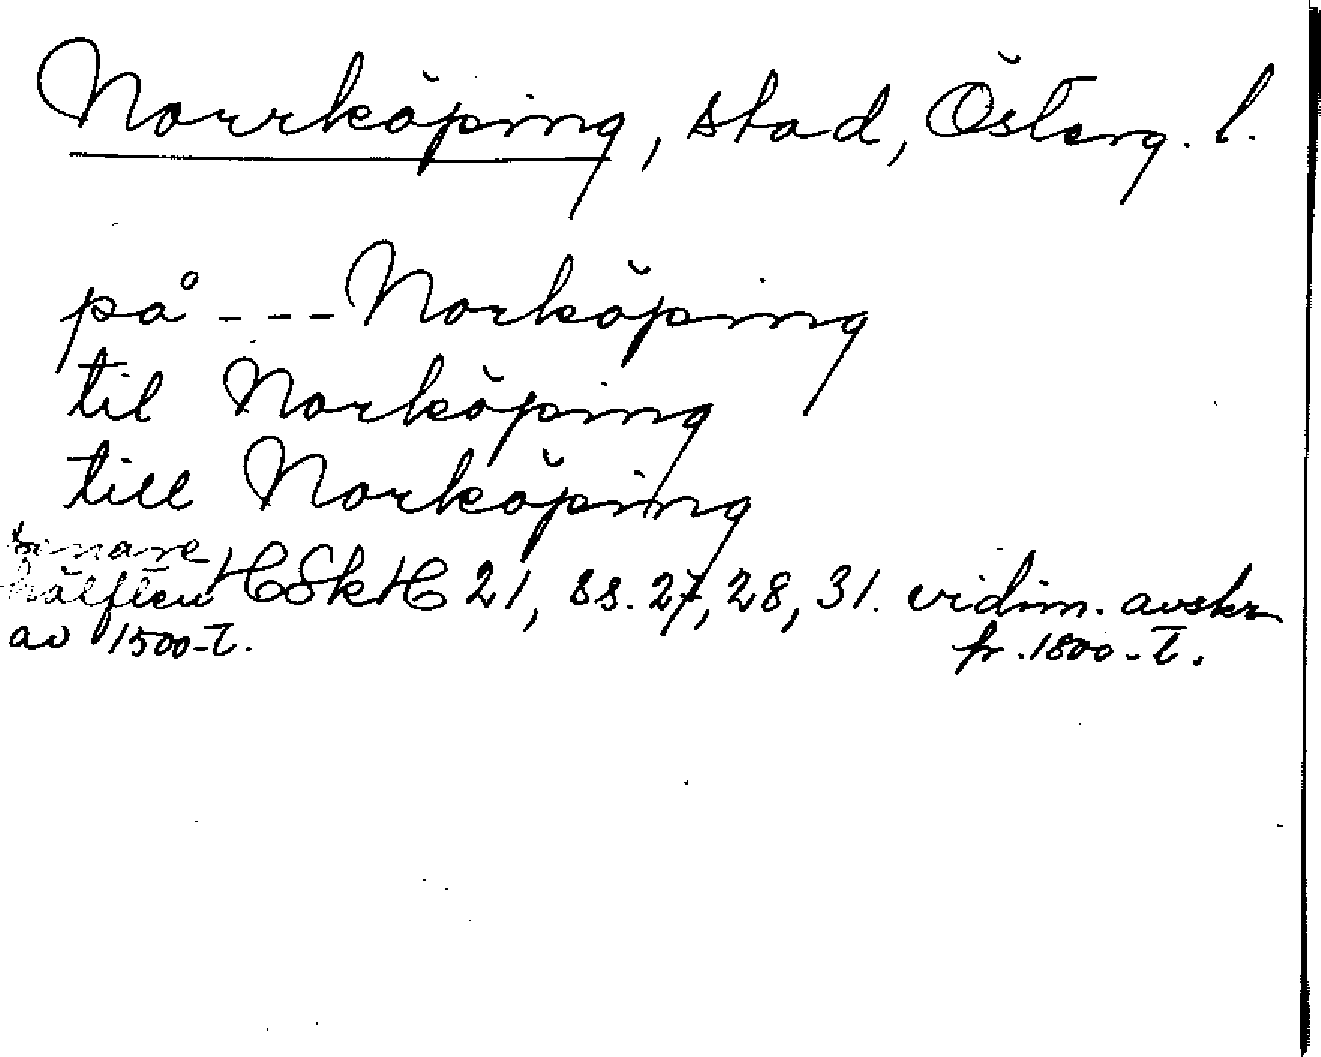 Norrköping, stad, Österg. l.
på - - - Norköping
til Norköping
till Norköping
senare
hälften HSkH 21, ss. 27, 28, 31. vidim. avskr
av 1500-t. fr. 1800-t.